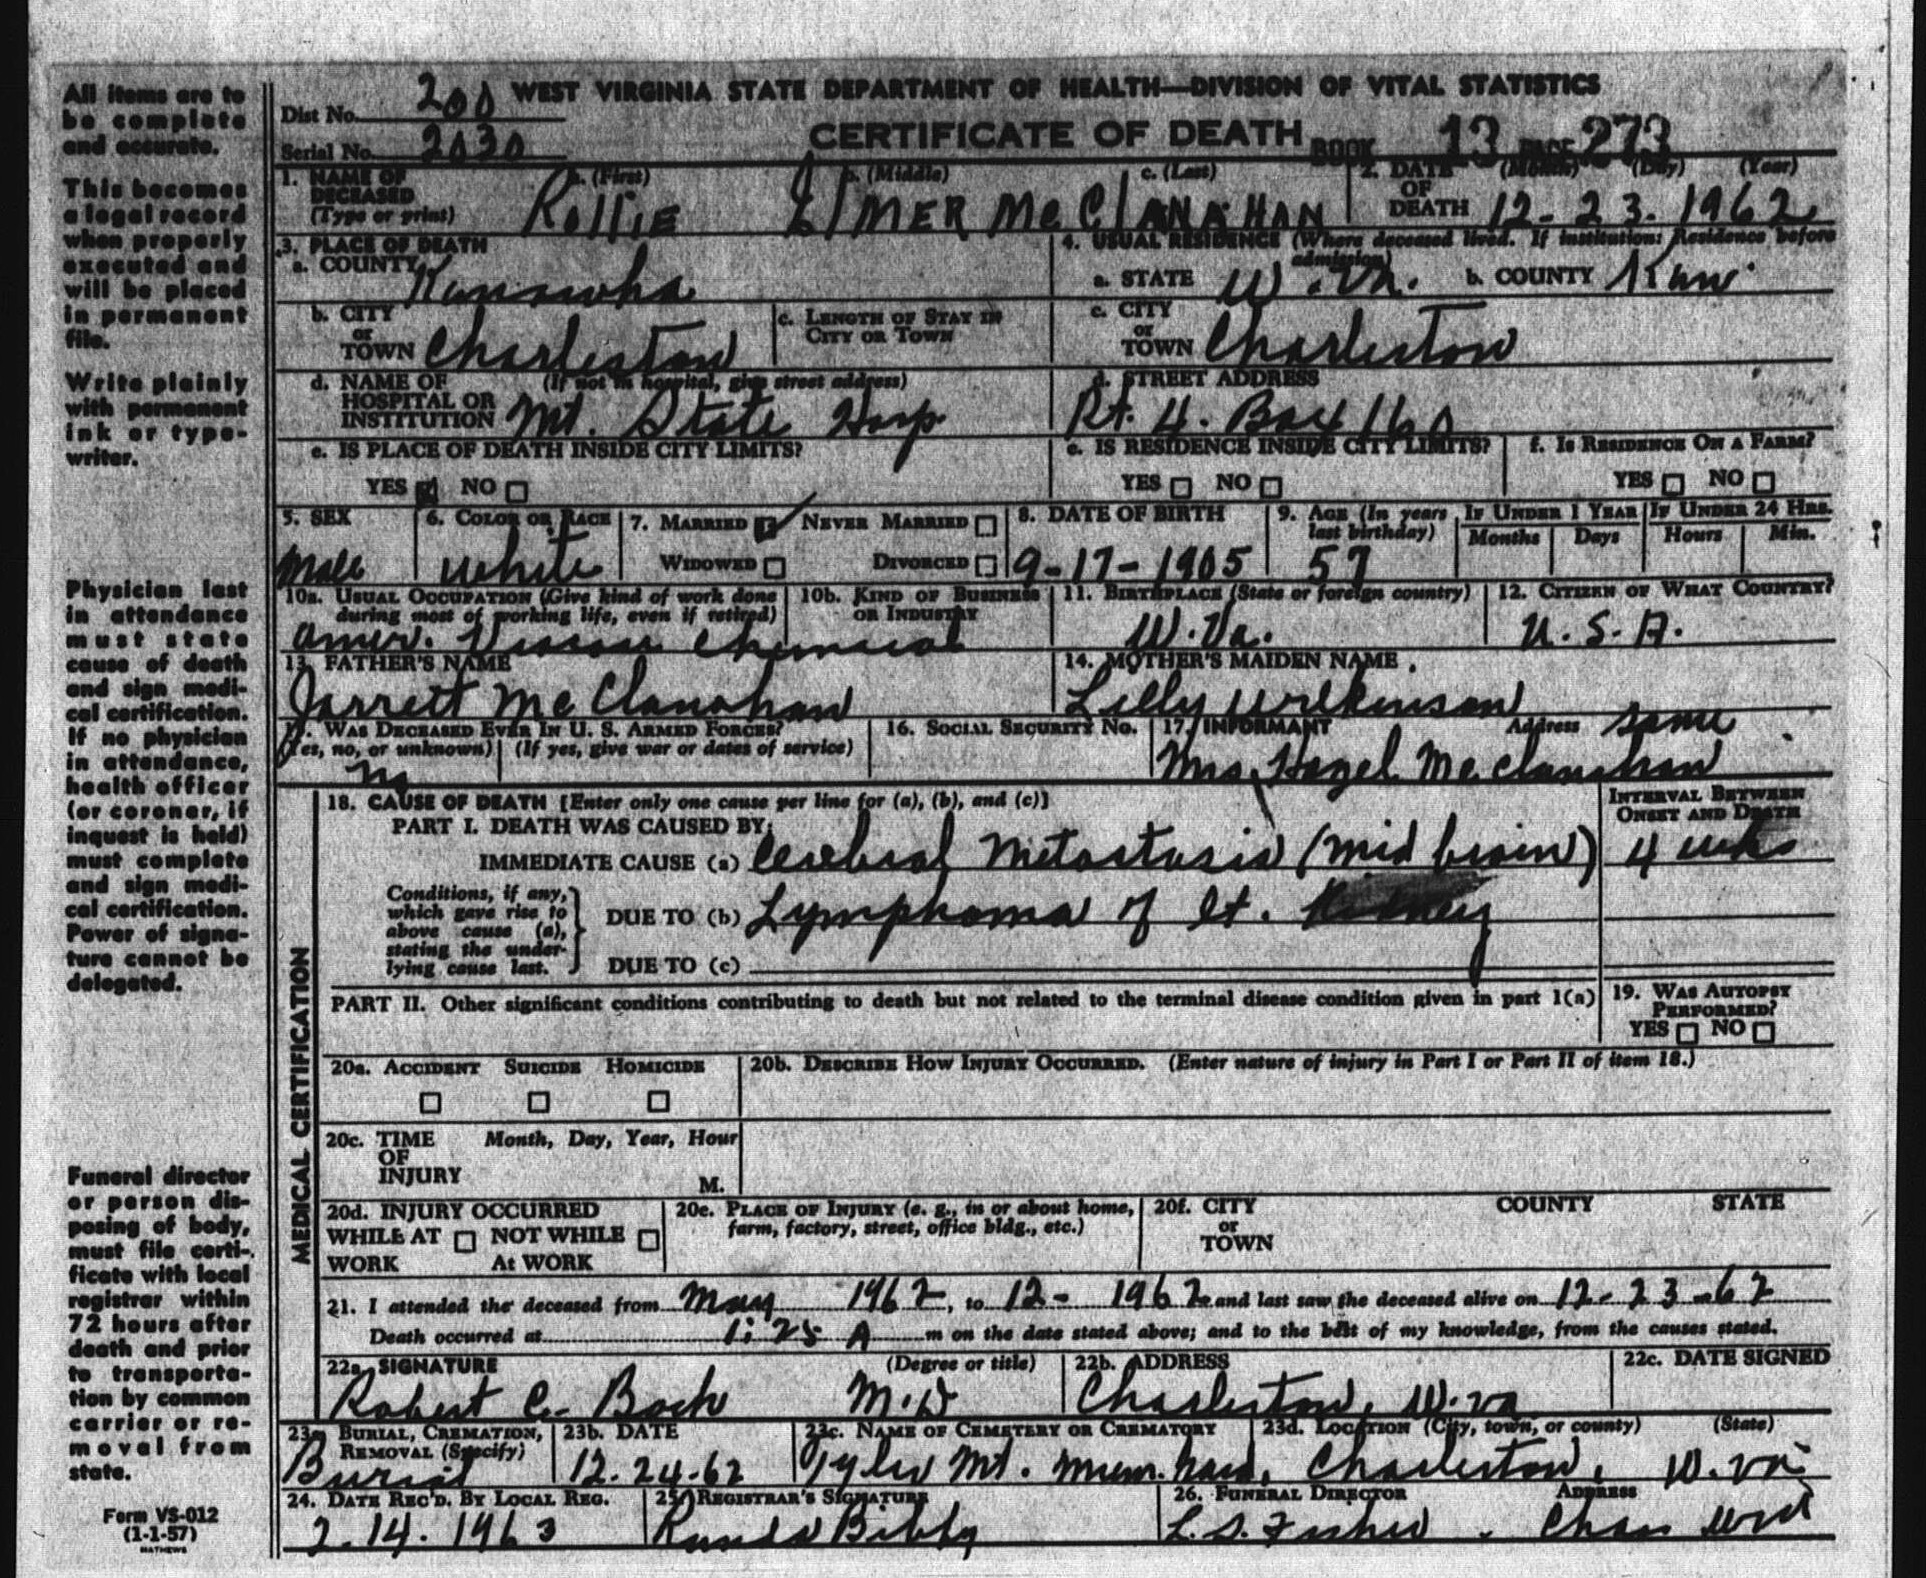 All items are to
be complete
and accurate.
This becomes
a legal record
when properly
executed and
will be placed
in permanent
file.
Write plainly
with permanent
ink or type-
writer.
Physician last
in attendance
must state
cause of death
and sign medi-
cal certification.
If no physician
in attendance,
health officer
(or coroner, if
inquest is held)
must complete
and sign medi-
cal certification.
Power of signa-
ture cannot be
delegated.
Funeral director
or person dis-
posing of body,
must file certi-
ficate with local
registrar within
72 hours after
death and prior
to transporta-
tion by common
carrier or re-
moval from
state.
Form VS-012
(1-1-57)
MATHEWS
Dist No. 200 WEST VIRGINIA STATE DEPARTMENT OF HEALTH—DIVISION OF VITAL STATISTICS
Serial No. 2030 CERTIFICATE OF DEATH BOOK 13 PAGE 273
1. NAME OF DECEASED (Type or print) a. (First) b. (Middle) c. (Last) 2. DATE OF DEATH (Month) (Day) (Year)
Rollie Elmer McClanahan 12-23-1962
3. PLACE OF DEATH 4. USUAL RESIDENCE (Where deceased lived. If institution: Residence before admission)
a. COUNTY Kanawha a. STATE W. Va. b. COUNTY Kaw
b. CITY or TOWN Charleston c. LENGTH OF STAY IN CITY OR TOWN c. CITY or TOWN Charleston
d. NAME OF HOSPITAL OR INSTITUTION (If not in hospital, give street address) Mt. State Hosp d. STREET ADDRESS Rt. 4. Box 160
e. IS PLACE OF DEATH INSIDE CITY LIMITS? e. IS RESIDENCE INSIDE CITY LIMITS? f. IS RESIDENCE ON A FARM?
YES NO YES NO YES NO
5. SEX 6. COLOR OR RACE 7. MARRIED NEVER MARRIED 8. DATE OF BIRTH 9. AGE (In years last birthday) IF UNDER 1 YEAR IF UNDER 24 HRS.
Months Days Hours Min.
Male White WIDOWED DIVORCED 9-17-1905 57
10a. USUAL OCCUPATION (Give kind of work done during most of working life, even if retired) 10b. KIND OF BUSINESS OR INDUSTRY 11. BIRTHPLACE (State or foreign country) 12. CITIZEN OF WHAT COUNTRY?
Amer. Viscose Chemical W. Va. U. S. A.
13. FATHER'S NAME 14. MOTHER'S MAIDEN NAME
Jarrett McClanahan Lilly Wilkinson
15. WAS DECEASED EVER IN U. S. ARMED FORCES? 16. SOCIAL SECURITY NO. 17. INFORMANT Address same
(Yes, no, or unknown) (If yes, give war or dates of service)
no Mrs Hazel McClanahan
MEDICAL CERTIFICATION
18. CAUSE OF DEATH [Enter only one cause per line for (a), (b), and (c)] INTERVAL BETWEEN ONSET AND DEATH
PART I. DEATH WAS CAUSED BY:
IMMEDIATE CAUSE (a) Cerebral Metastasis (mid brain) 4 wks
Conditions, if any, which gave rise to above cause (a), stating the underlying cause last.
DUE TO (b) Lymphoma of lt. Kidney
DUE TO (c)
PART II. Other significant conditions contributing to death but not related to the terminal disease condition given in part 1(a) 19. WAS AUTOPSY PERFORMED?
YES NO
20a. ACCIDENT SUICIDE HOMICIDE 20b. DESCRIBE HOW INJURY OCCURRED. (Enter nature of injury in Part I or Part II of item 18.)
20c. TIME OF INJURY Month, Day, Year, Hour M.
20d. INJURY OCCURRED WHILE AT WORK NOT WHILE At WORK 20e. PLACE OF INJURY (e. g., in or about home, farm, factory, street, office bldg., etc.) 20f. CITY or TOWN COUNTY STATE
21. I attended the deceased from May 1962, to 12- 1962 and last saw the deceased alive on 12-23-62
Death occurred at 1:25 A m on the date stated above; and to the best of my knowledge, from the causes stated.
22a. SIGNATURE (Degree or title) 22b. ADDRESS 22c. DATE SIGNED
Robert C. Bock M.D Charleston, W. Va
23a. BURIAL, CREMATION, REMOVAL (Specify) 23b. DATE 23c. NAME OF CEMETERY OR CREMATORY 23d. LOCATION (City, town, or county) (State)
Burial 12.24-62 Tyler Mt. Mem. Charleston, W. Va
24. DATE REC'D. BY LOCAL REG. 25. REGISTRAR'S SIGNATURE 26. FUNERAL DIRECTOR ADDRESS
2.14.1963 L. S. Chas